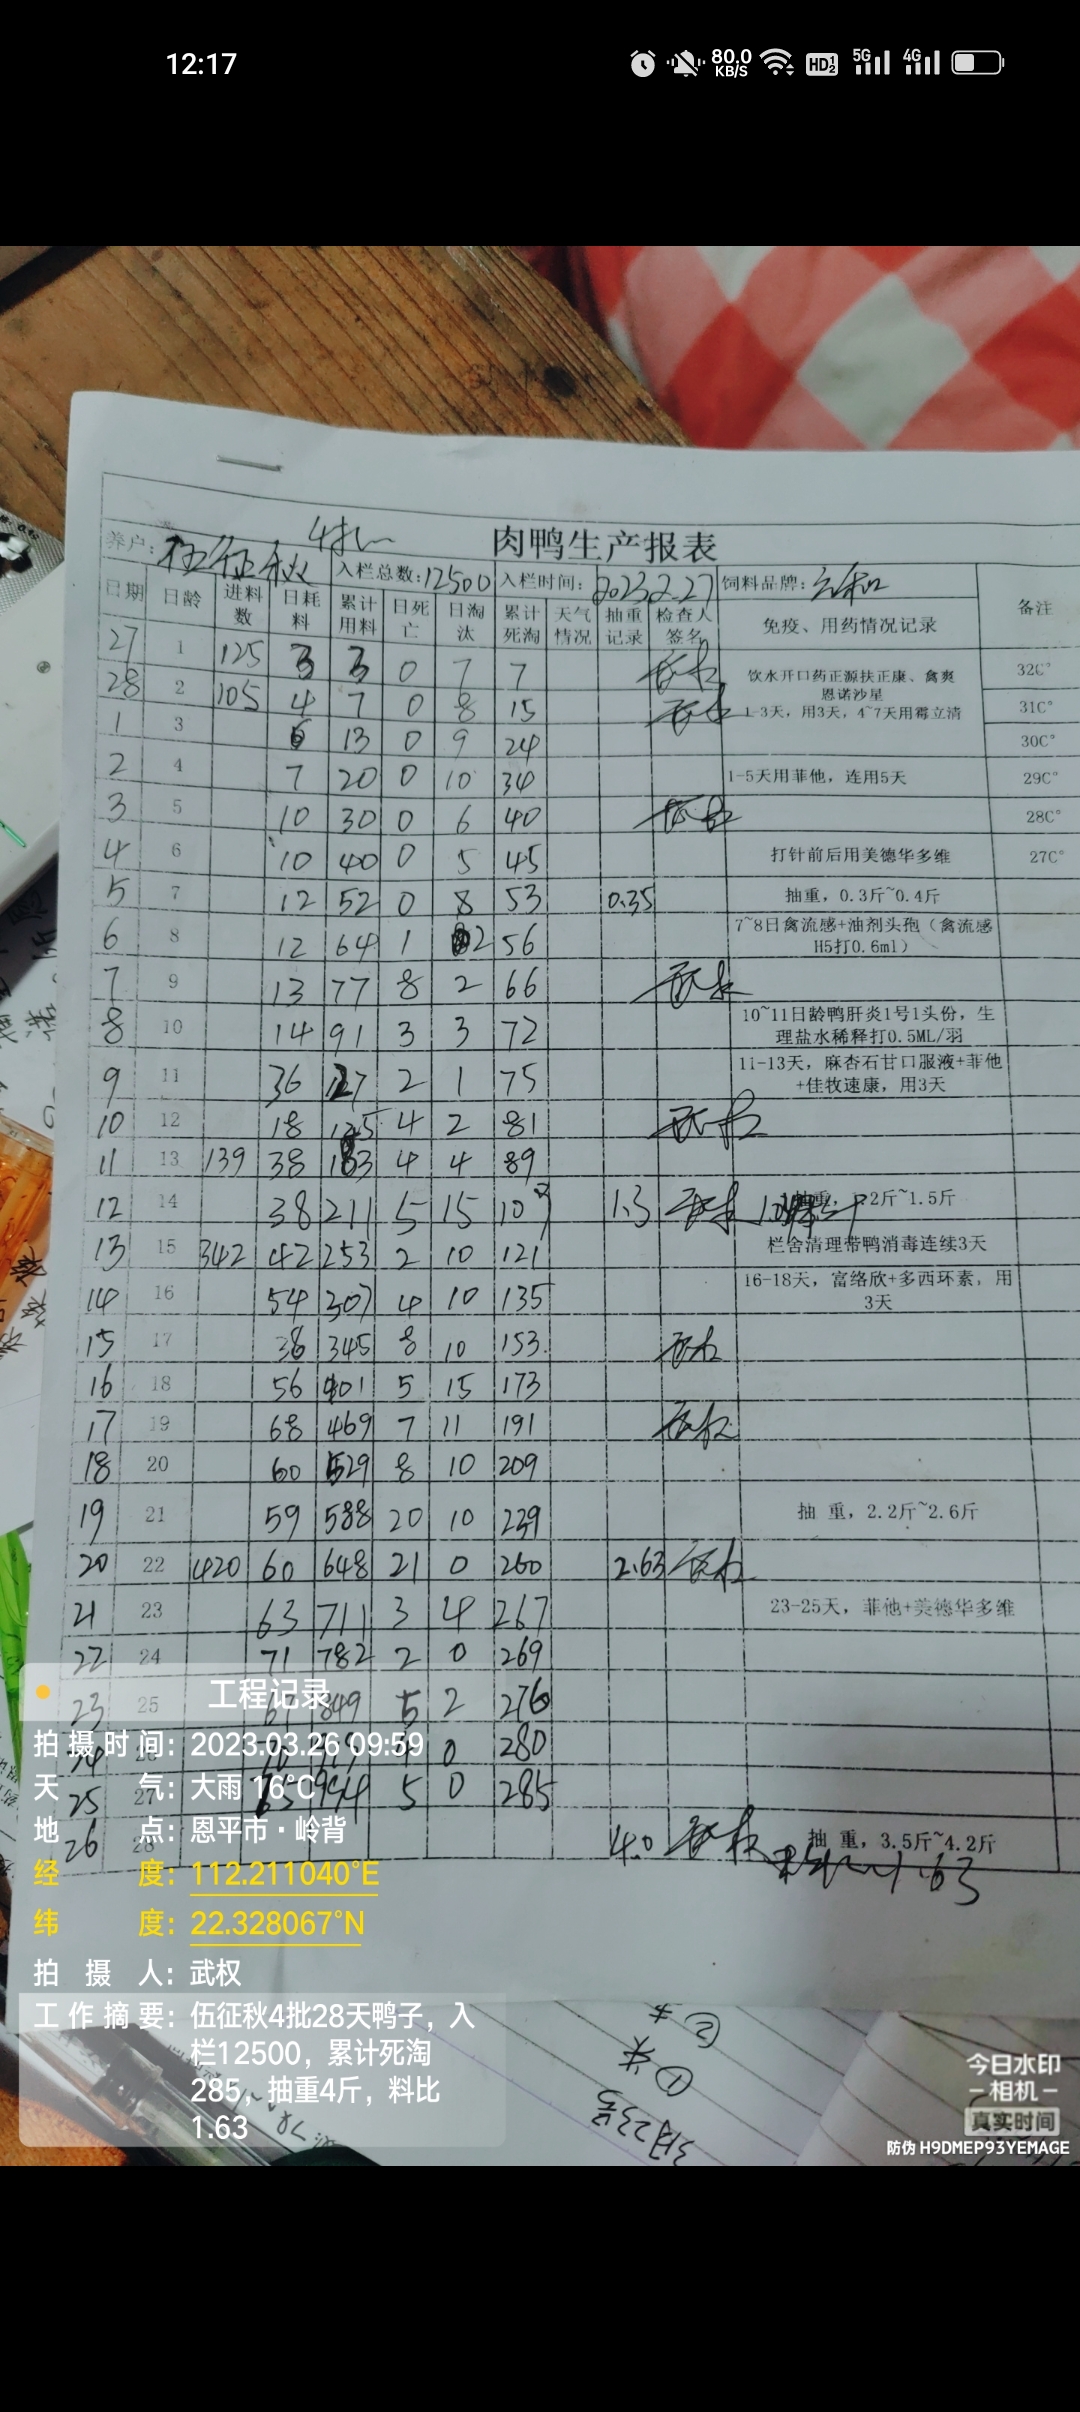 12:17
80.0 KB/S HD 5G 4G
肉鸭生产报表
4批
养户: 伍征秋 入栏总数:12500 入栏时间: 2023.2.27 饲料品牌:
日期 日龄 进料数 日耗料 累计用料 日死亡 日淘汰 累计死淘 天气情况 抽重记录 检查人签名 免疫、用药情况记录 备注
27 1 125 3 3 0 7 7 饮水开口药正源扶正康、禽爽恩诺沙星 32C°
28 2 105 4 7 0 8 15 1-3天，用3天，4~7天用霉立清 31C°
1 3 6 13 0 9 24 30C°
2 4 7 20 0 10 34 1-5天用菲他，连用5天 29C°
3 5 10 30 0 6 40 28C°
4 6 10 40 0 5 45 打针前后用美德华多维 27C°
5 7 12 52 0 8 53 0.35 抽重，0.3斤~0.4斤
6 8 12 64 1 2 56 7~8日禽流感+油剂头孢（禽流感H5打0.6ml）
7 9 13 77 8 2 66
8 10 14 91 3 3 72 10~11日龄鸭肝炎1号1头份，生理盐水稀释打0.5ML/羽
9 11 36 127 2 1 75 11-13天，麻杏石甘口服液+菲他+佳牧速康，用3天
10 12 18 4 2 81
11 13 139 38 4 4 89
12 14 38 211 5 15 109 1.3 2斤~1.5斤
13 15 342 42 253 2 10 121 栏舍清理带鸭消毒连续3天
14 16 54 307 4 10 135 16-18天，富络欣+多西环素，用3天
15 17 38 345 8 10 153
16 18 56 401 5 15 173
17 19 68 469 7 11 191
18 20 60 529 8 10 209
19 21 59 588 20 10 239 抽 重，2.2斤~2.6斤
20 22 420 60 648 21 0 260 2.63
21 23 63 711 3 4 267 23-25天，菲他+美德华多维
22 24 71 782 2 0 269
23 25 849 5 2 276
0 280
25 27 5 0 285
26 28 4.0 抽 重，3.5斤~4.2斤
1.63
工程记录
拍摄时间: 2023.03.26 09:59
天气: 大雨 16°C
地点: 恩平市·岭背
经度: 112.211040°E
纬度: 22.328067°N
拍摄人: 武权
工作摘要: 伍征秋4批28天鸭子，入
栏12500，累计死淘
285，抽重4斤，料比
1.63
3月23号
今日水印
-相机-
真实时间
防伪 H9DMEP93YEMAGE